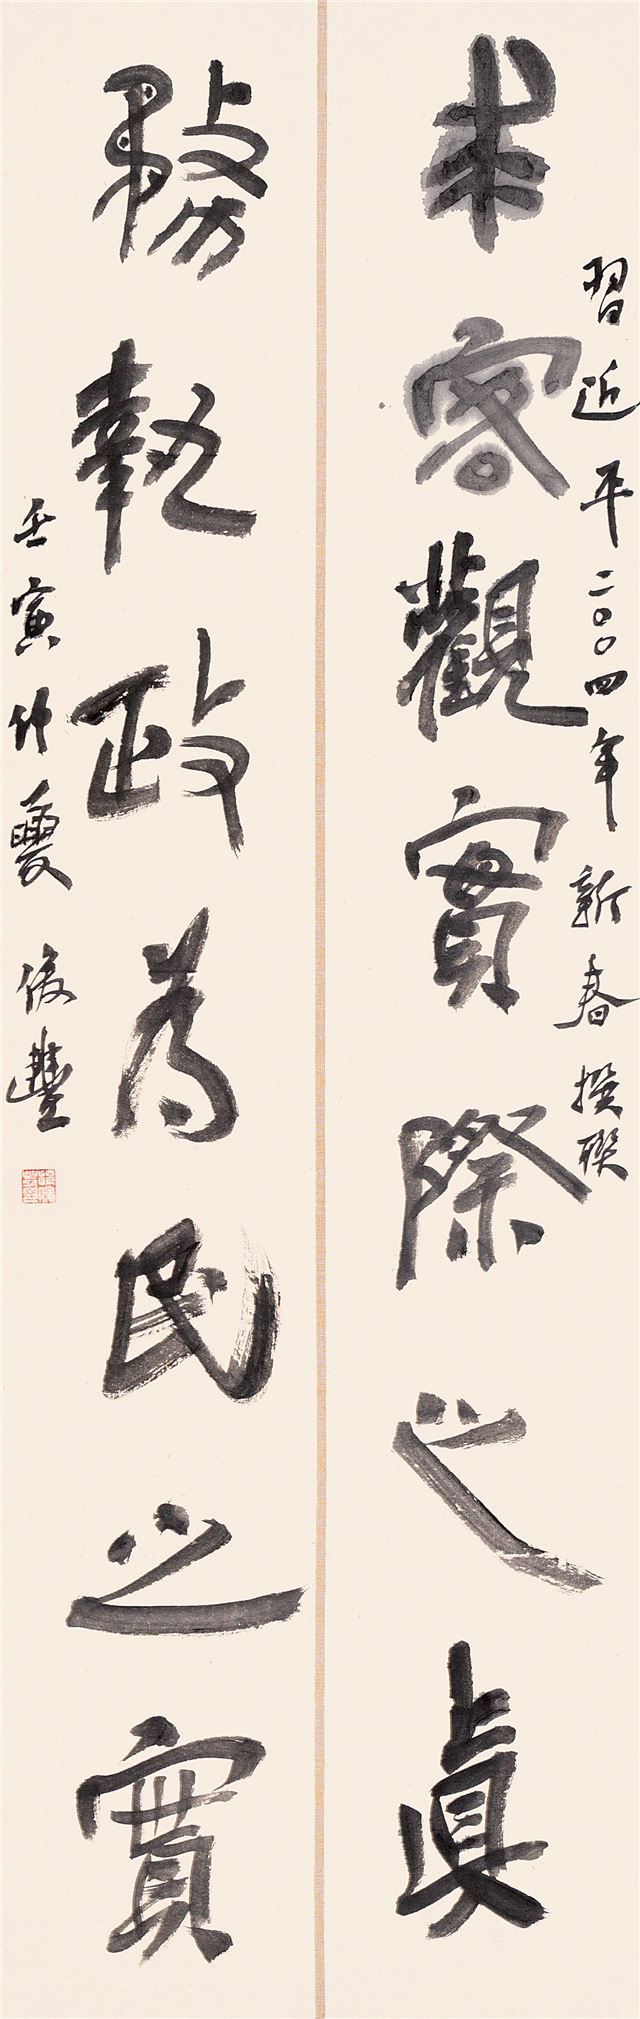 求客觀實際之真
習近平二〇〇四年新春撰聯
務執政為民之實
壬寅仲夏 俊豐